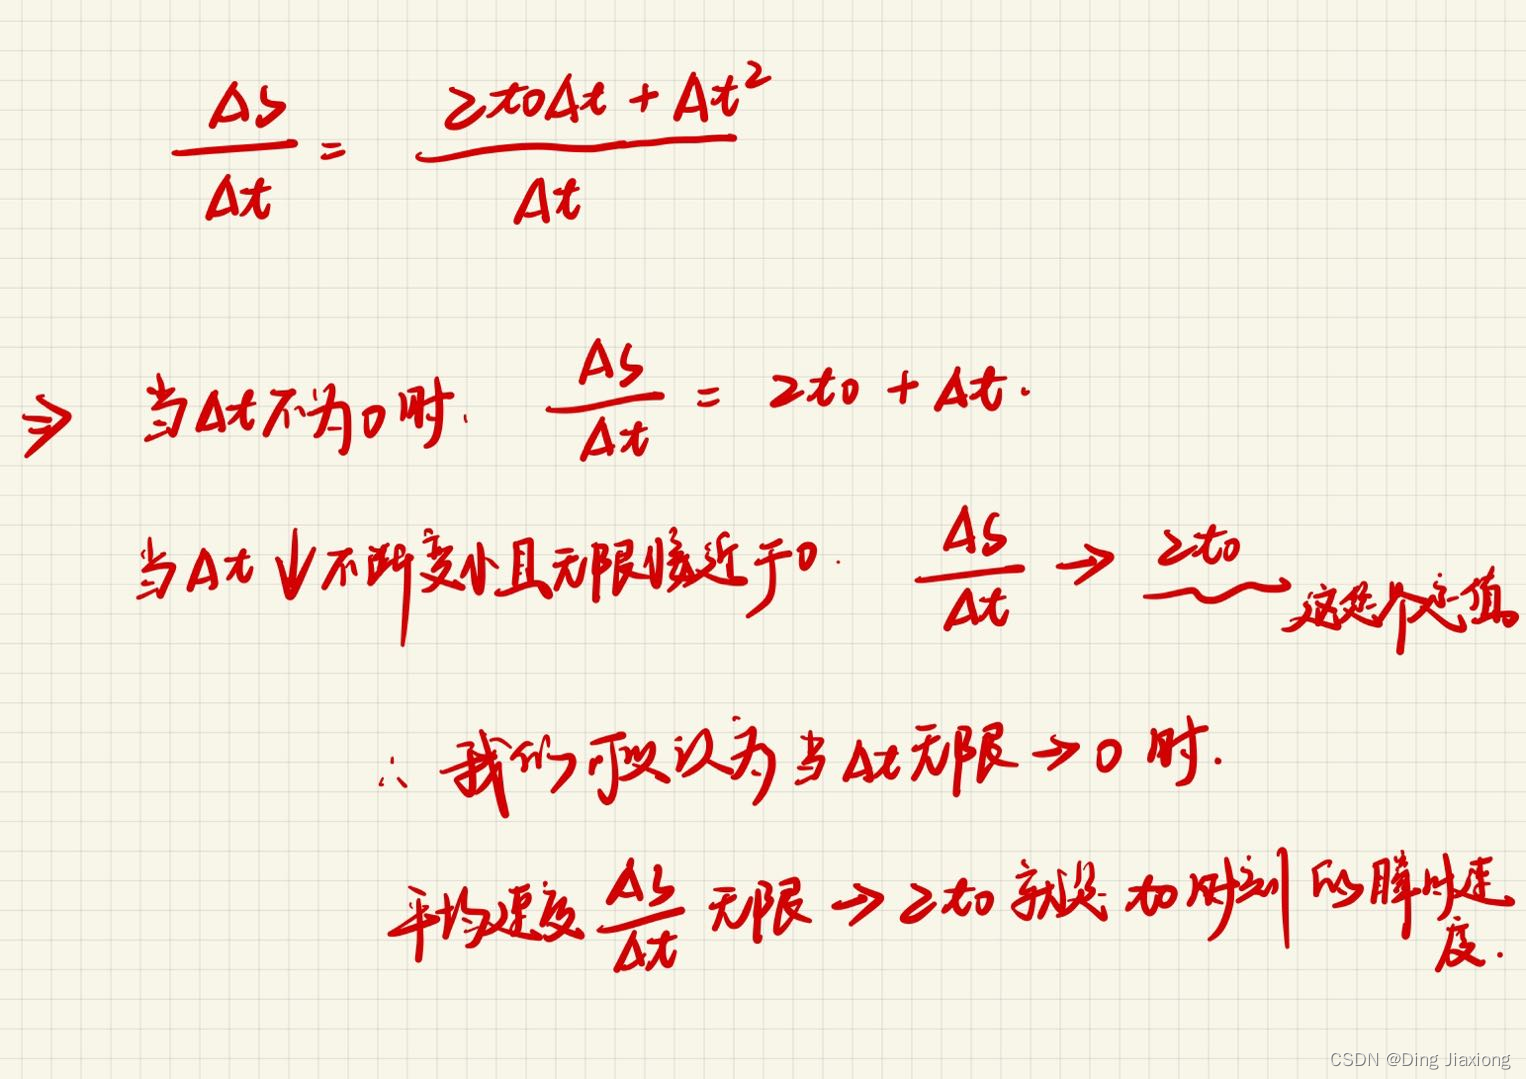 Δs/Δt = (2t0Δt + Δt²)/Δt
⇒ 当Δt不为0时. Δs/Δt = 2t0 + Δt.
当Δt↓不断变小且无限接近于0. Δs/Δt → 2t0 这是个定值。
∴ 我们可以认为当Δt无限→0时.
平均速度Δs/Δt无限→2t0就是t0时刻的瞬时速
度.
CSDN @Ding Jiaxiong